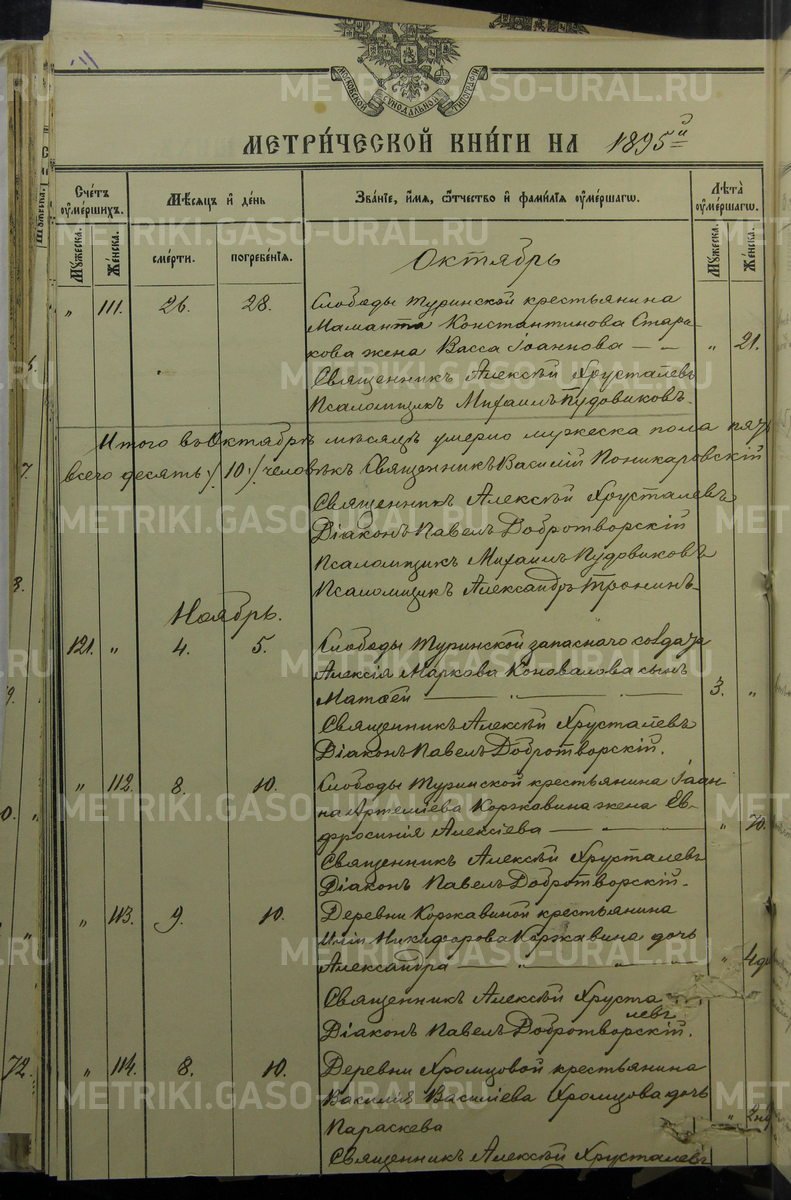 МОСКОВСКОЙ СУНОДАЛЬНОЙ ТИПОГРАФІИ
МЕТРИ́ЧЕСКОЙ КНИ́ГИ НА 1895й
Сче́тъ ᲂу҆ме́ршихъ.
Мѣ́сяцъ и҆ де́нь
Зва́нїе, и҆́мя, ѻ҆́тчество и҆ фамі́лїѧ ᲂу҆ме́ршагѡ.
Лѣ́та ᲂу҆ме́ршагѡ.
Мꙋ́жеска. Же́нска. сме́рти. погребе́нїѧ. Мꙋ́жеска. Же́нска.
Октябрь
„ 111. 26. 28. Слободы Туринской крестьянина
Маманта Константинова Стари-
кова жена Васса Іоаннова — — „ 21.
Священникъ Алексѣй Хрусталевъ
Псаломщикъ Михаилъ Пудовиковъ.
Итого въ Октябрѣ мѣсяцѣ умерло мужеска пола пять
всего десять /. 10 ./ человѣкъ Священникъ Василій Поникаровскій
Священникъ Алексѣй Хрусталевъ
Діаконъ Павелъ Добротворскій
Псаломщикъ Михаилъ Пудовиковъ
Псаломщикъ Александръ Тронинъ.
Ноябрь.
121. „ 4. 5. Слободы Туринской запаснаго солдата
Алексія Маркова Коновалова сынъ
Матѳей — „ — „ — 3. „
Священникъ Алексѣй Хрусталевъ
Діаконъ Павелъ Добротворскій.
„ 112. 8. 10. Слободы Туринской крестьянина Іоан-
на Артеміева Коржавина жена Ев-
фросинія Алексіева — — „ — „ 70.
Священникъ Алексѣй Хрусталевъ
Діаконъ Павелъ Добротворскій.
„ 113. 9. 10. Деревни Коржавиной крестьянина
Иліи Никифорова Коржавина дочь
Александра — „ — „ — „ 4
Священникъ Алексѣй Хруста
левъ
Діаконъ Павелъ Добротворскій.
„ 114. 8. 10. Деревни Хромцовой крестьянина
Василія Василіева Хромцова дочь
Параскева „ 2
Священникъ Алексѣй Хрусталевъ
72.
METRIKI.GASO-URAL.RU